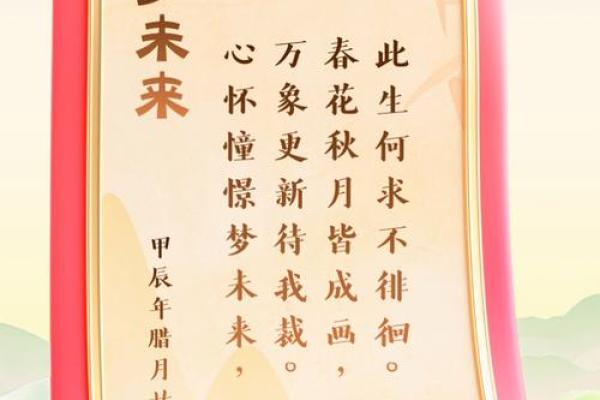 未来
甲辰年腊月
心怀憧憬梦未来,
万象更新待我裁。
春花秋月皆成画,
此生何求不徘徊。